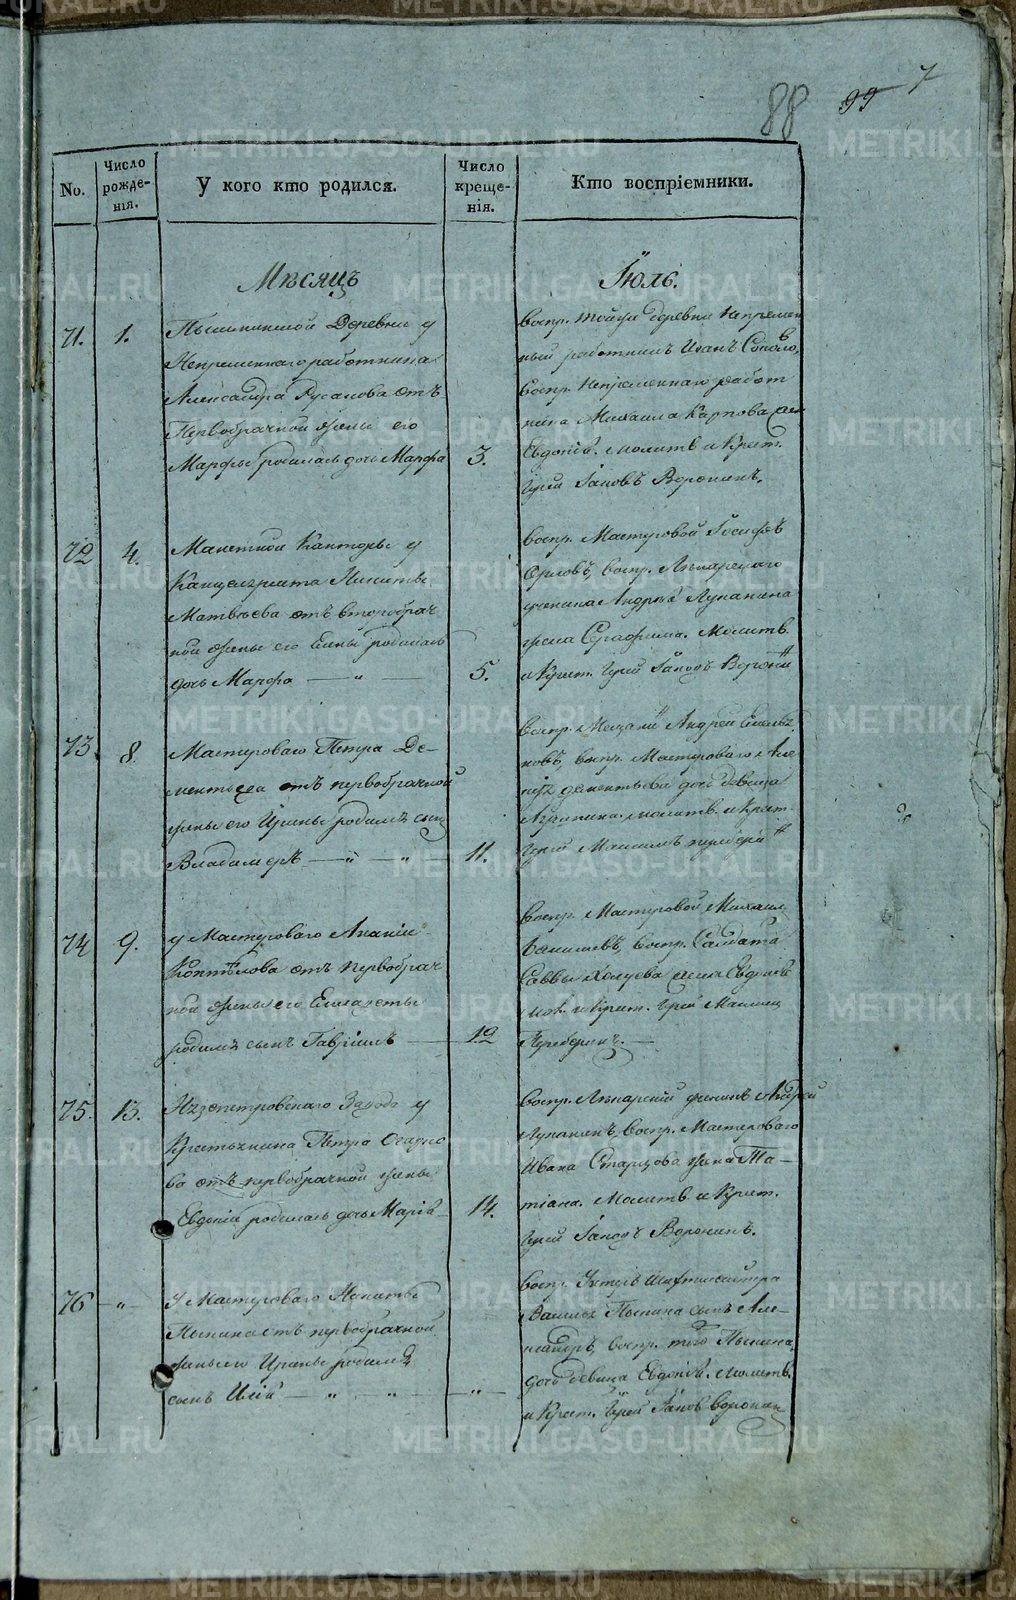 88 99 7
No.
Число рожде-
нія.
У кого кто родился.
Число креще-
нія.
Кто воспріемники.
Мѣсяцъ
Іюль.
71. 1.
Пышминской Деревни у
Непременнаго работника
Александра Русакова отъ
Первобрачной жены его
Марфы родилась дочь Марфа
3.
Воспр. тойже деревни Непремен
ный работникъ Иванъ Соколо
Воспр. Непременнаго работ
ника Михаила Карпова
Евдокія. молитв. и Крест.
Іерей Іаковъ Воронинъ.
72 4.
Манетной Канторы у
Канцеляриста Никиты
Матвѣева отъ второбрач
ной жены его Елены родилась
дочь Марфа — " —
5.
Воспр. Мастеровой Іосифъ
Орловъ, воспр. Лѣкарскаго
ученика Андрея Лупанина
жена Серафима. Молитв.
и Крест. Іерей Іаковъ Воронин
73 8.
Мастероваго Петра Де-
ментьева отъ первобрачной
жены его Ирины родился сынъ
Владимеръ — " — "
11.
Воспр. Андрей
новъ, воспр. Мастероваго Але
дементьева дочь девица
Агрипина молитв. и Крест.
Іерей
74 9.
у Мастероваго Ананіи
Коптѣлова отъ первобрач
ной жены его Елисаветы
родился сынъ Гавріилъ —
12
Воспр. Мастеровой Михаил
воспр. Салдата
Саввы жена Евдокія
мол. и Крест. Іерей
75. 13.
Нязепетровскаго Завода у
Крестьянина Петра
ва отъ первобрачной жены
Евдокіи родилась дочь Марія
14.
Воспр. Лѣкарскій ученикъ Андрей
Лупанинъ, воспр. Мастероваго
Ивана Старцова жена Та—
тіана. Молитв. и Крест.
Іерей Іаковъ Воронинъ.
76 — " —
У Мастероваго Никиты
Пынина отъ первобрачной
жены его Ирины родился
сынъ Илія — " — " —
— " —
Воспр. Унтеръ Шихтмейстера
Василья Пынина сынъ Але—
ксандръ, воспр. того Пынина
дочь девица Евдокія. молитв.
и Крест. Іерей Іаков Воронин
METRIKI.GASO-URAL.RU